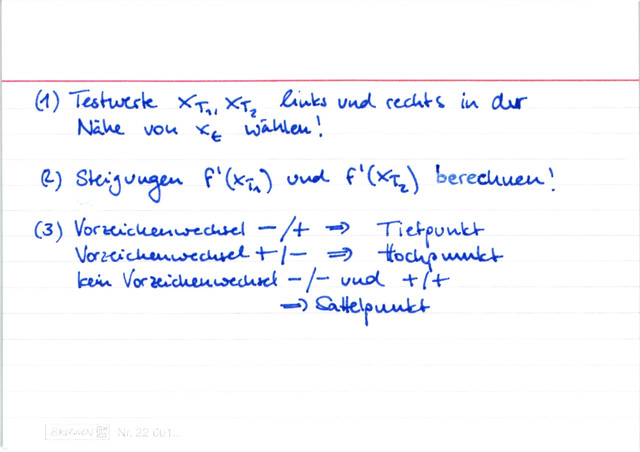 (1) Testwerte x_T₁, x_T₂ links und rechts in der
Nähe von x_E wählen!
(2) Steigungen f'(x_T₁) und f'(x_T₂) berechnen!
(3) Vorzeichenwechsel -/+ ⇒ Tiefpunkt
Vorzeichenwechsel +/- ⇒ Hochpunkt
kein Vorzeichenwechsel -/- und +/+
⇒ Sattelpunkt
BRUNNEN Nr. 22 601